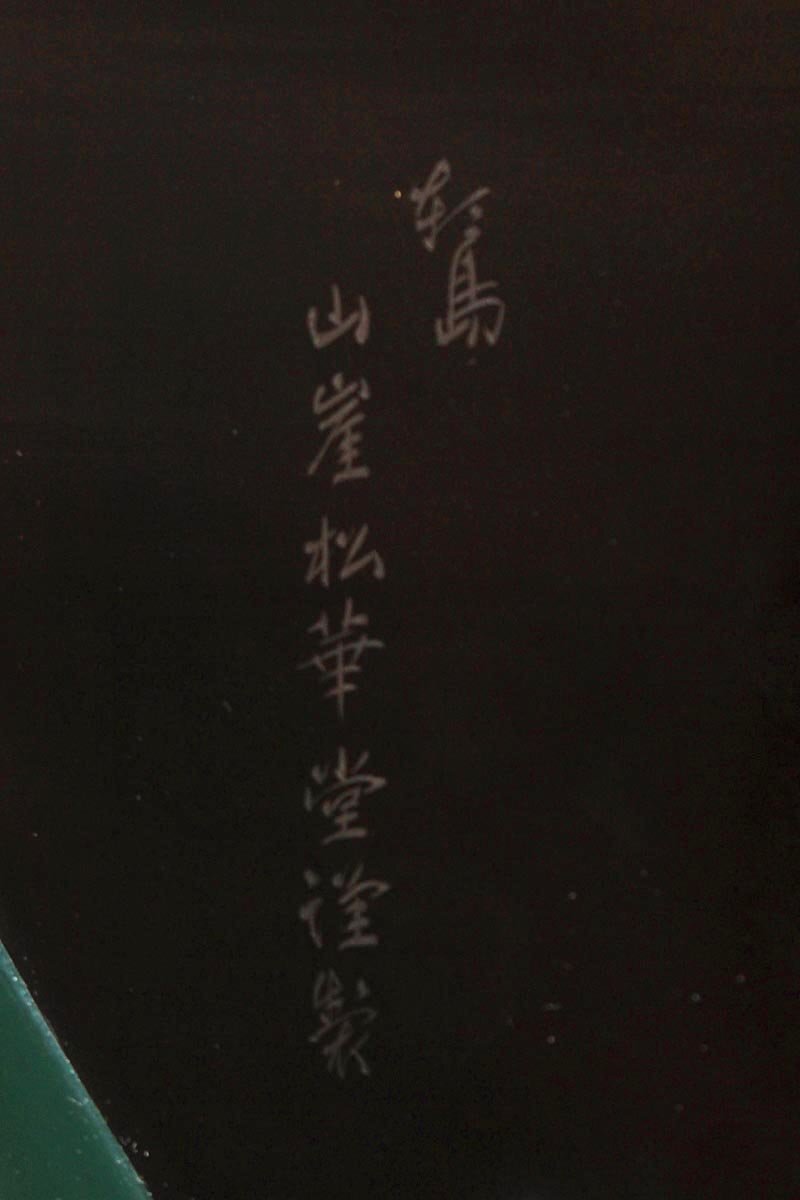 輪島
山崖松華堂謹製